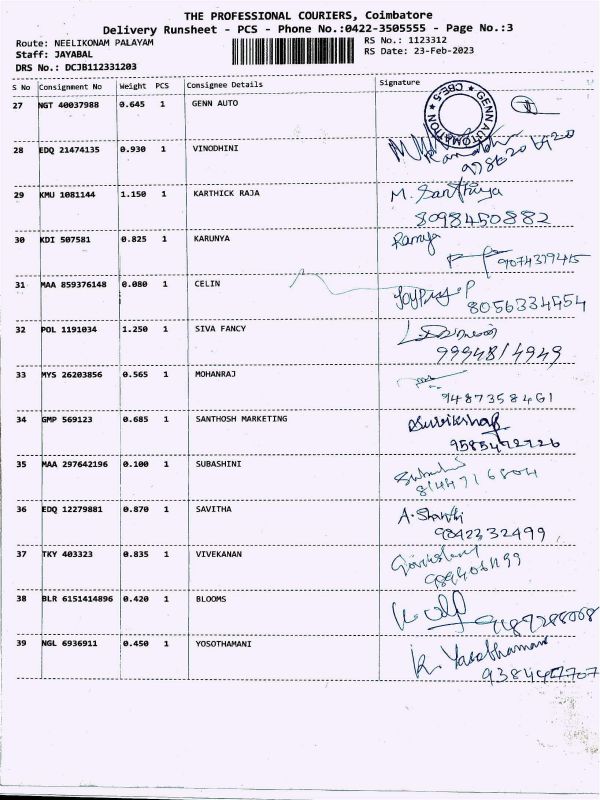 THE PROFESSIONAL COURIERS, Coimbatore
Delivery Runsheet - PCS - Phone No.:0422-3505555 - Page No.:3
Route: NEELIKONAM PALAYAM
RS No.: 1123312
Staff: JAYABAL
RS Date: 23-Feb-2023
DRS No.: DCJB112331203
S No Consignment No Weight PCS Consignee Details Signature
27 NGT 40037988 0.645 1 GENN AUTO
GENN AUTOMATION ★ CBE-5 ★
28 EDQ 21474135 0.930 1 VINODHINI
29 KMU 1081144 1.150 1 KARTHICK RAJA M. Santhiya
8098450882
30 KDI 507581 0.825 1 KARUNYA Ramya
9074379415
31 MAA 859376148 0.080 1 CELIN
8056334454
32 POL 1191034 1.250 1 SIVA FANCY
9994814949
33 MYS 26203856 0.565 1 MOHANRAJ
9487358461
34 GMP 569123 0.685 1 SANTHOSH MARKETING
9585472726
35 MAA 297642196 0.100 1 SUBASHINI
8144716804
36 EDQ 12279881 0.870 1 SAVITHA A. Shanthi
9842332499
37 TKY 403323 0.835 1 VIVEKANAN
38 BLR 6151414896 0.420 1 BLOOMS
39 NGL 6936911 0.450 1 YOSOTHAMANI K. Yasothamani